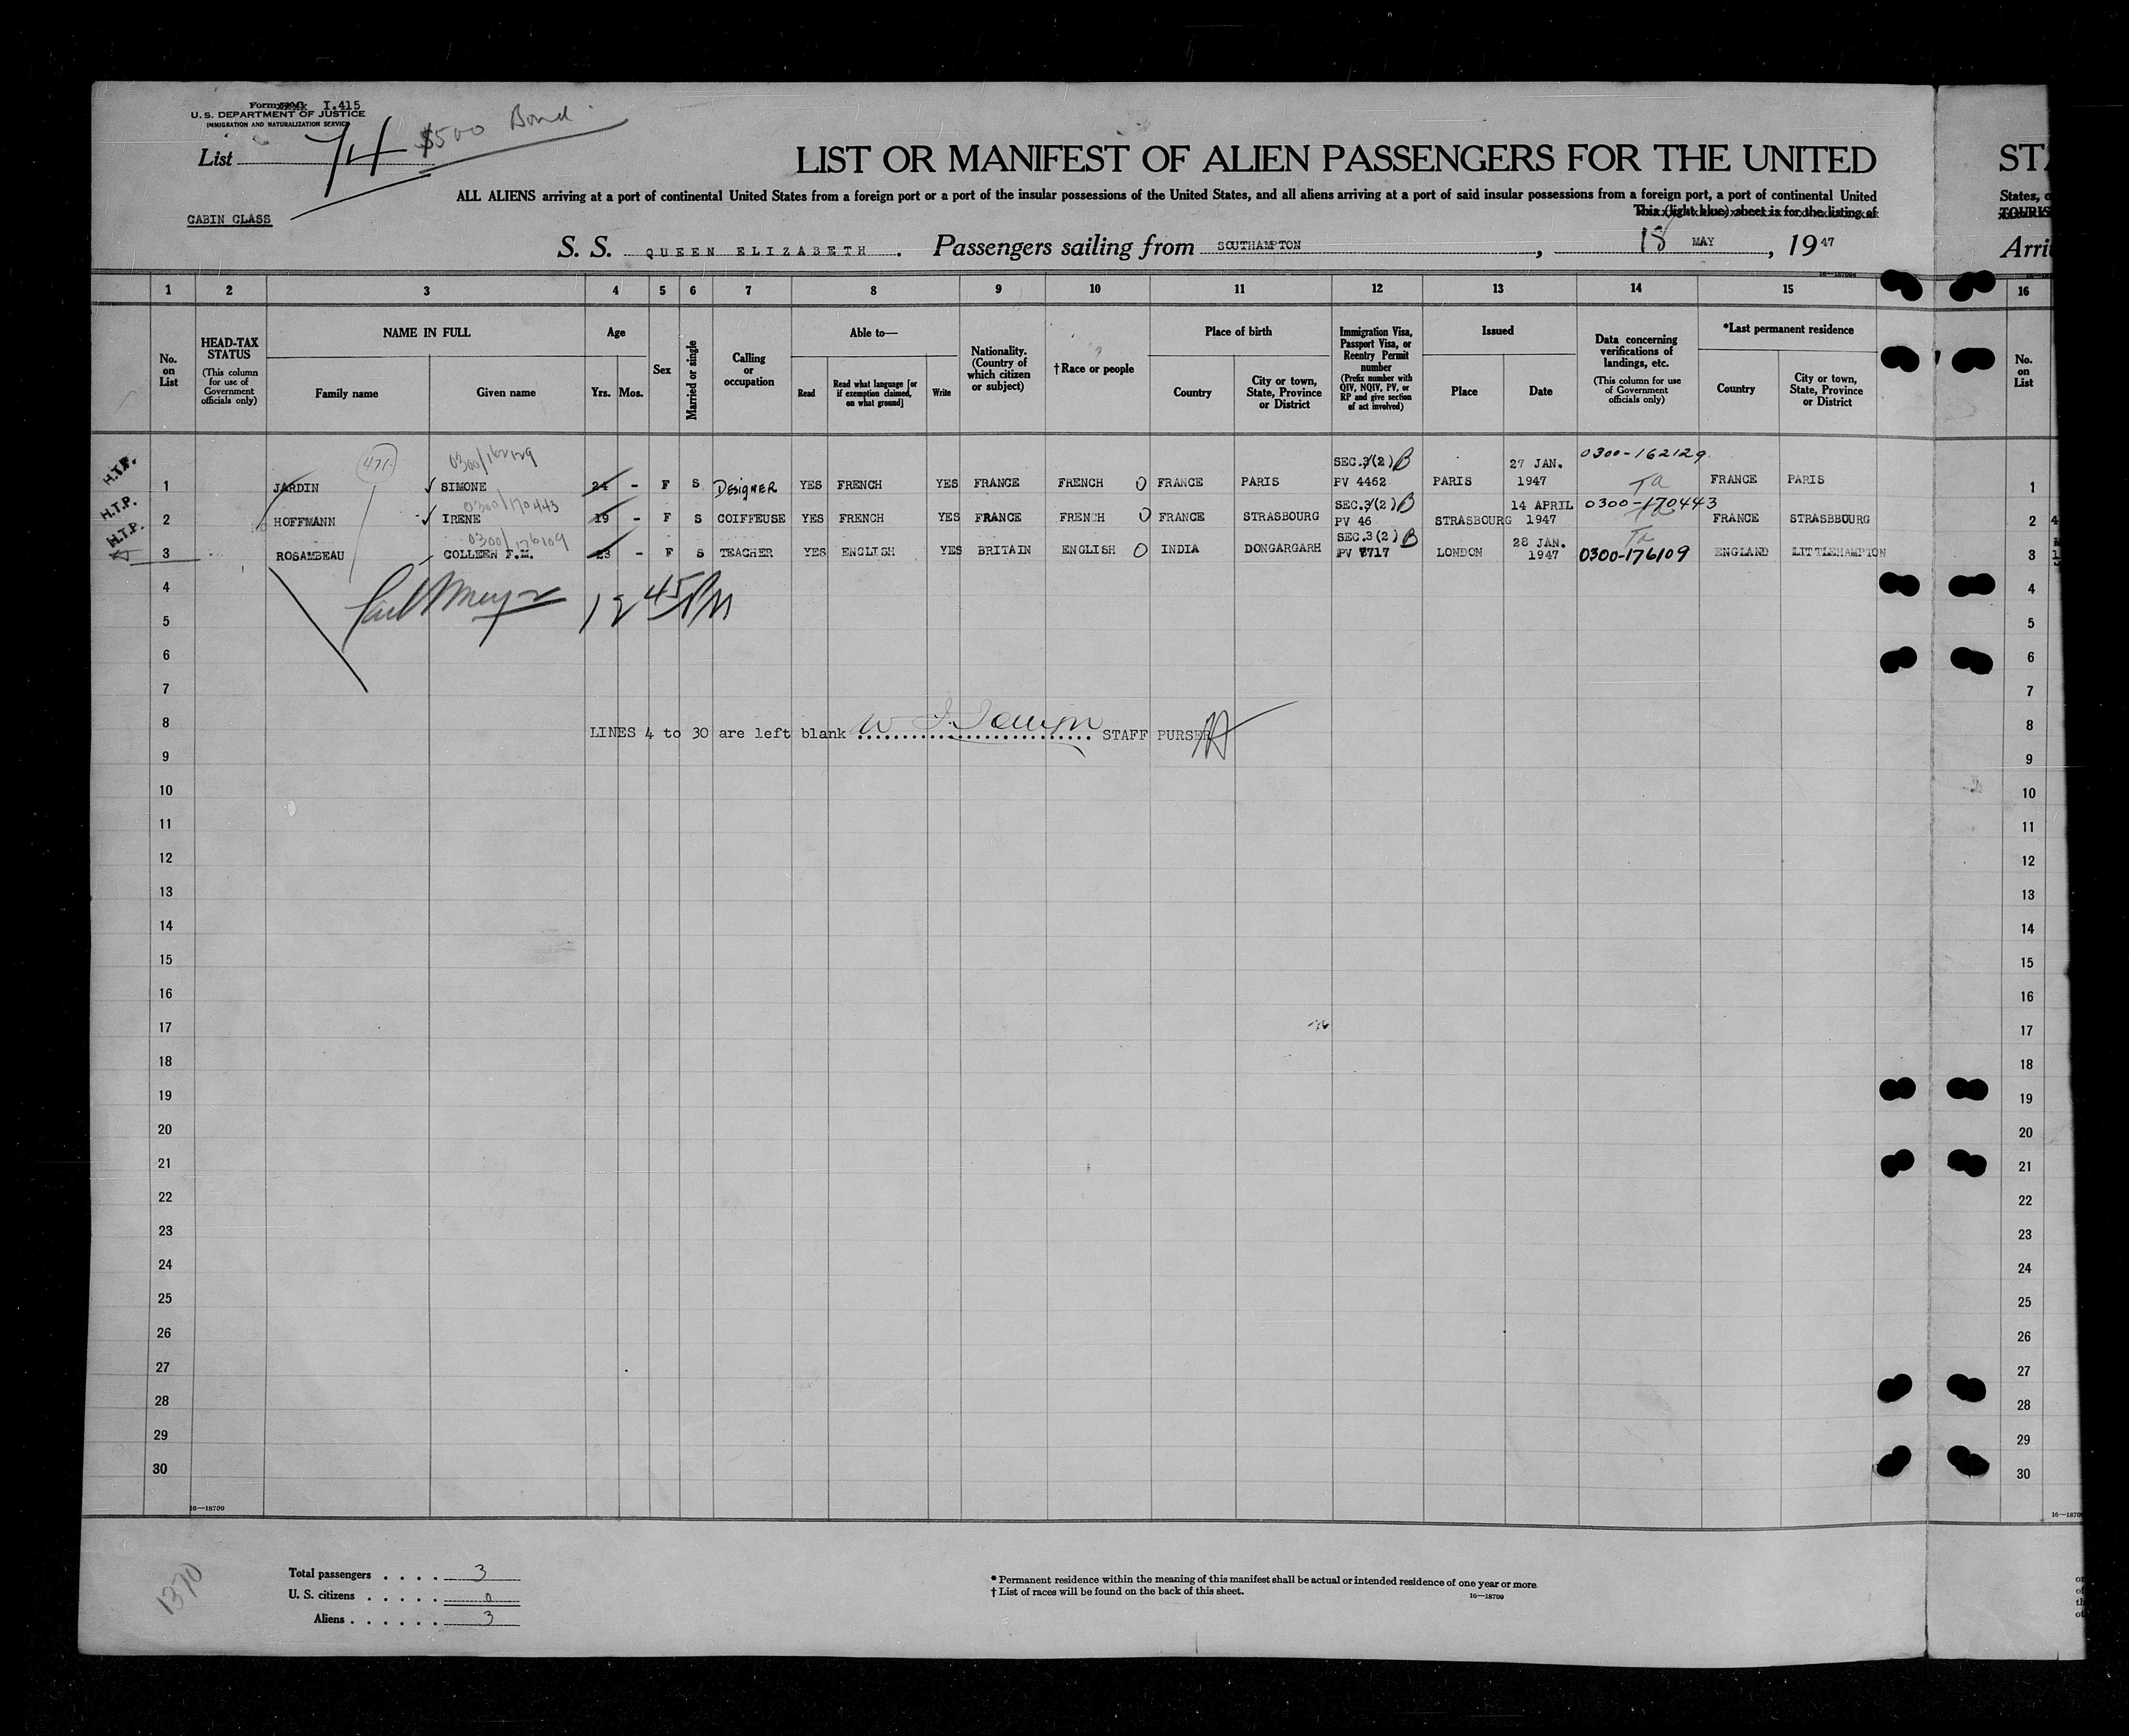 Form I.415
U. S. DEPARTMENT OF JUSTICE
IMMIGRATION AND NATURALIZATION SERVICE
List 74 $500 Bond
CABIN CLASS
LIST OR MANIFEST OF ALIEN PASSENGERS FOR THE UNITED
ALL ALIENS arriving at a port of continental United States from a foreign port or a port of the insular possessions of the United States, and all aliens arriving at a port of said insular possessions from a foreign port, a port of continental United
This (light blue) sheet is for the listing of
S. S. QUEEN ELIZABETH. Passengers sailing from SOUTHAMPTON, 18 MAY, 1947
16—18709
STA
States, o
TOURIS
Arri
1 2 3 4 5 6 7 8 9 10 11 12 13 14 15 16
No. on List
HEAD-TAX STATUS (This column for use of Government officials only)
NAME IN FULL
Family name
Given name
Age
Yrs. Mos.
Sex
Married or single
Calling or occupation
Able to—
Read
Read what language [or if exemption claimed, on what ground]
Write
Nationality. (Country of which citizen or subject)
†Race or people
Place of birth
Country
City or town, State, Province or District
Immigration Visa, Passport Visa, or Reentry Permit number (Prefix number with QIV, NQIV, PV, or RP and give section of act involved)
Issued
Place
Date
Data concerning verifications of landings, etc. (This column for use of Government officials only)
*Last permanent residence
Country
City or town, State, Province or District
No. on List
471
0300/162129
H.T.P. 1 JARDIN ✓ SIMONE 24 - F S DESIGNER YES FRENCH YES FRANCE FRENCH O FRANCE PARIS SEC.3(2) B PV 4462 PARIS 27 JAN. 1947 0300-162129 Ta FRANCE PARIS 1
0300/170443
H.T.P. 2 HOFFMANN ✓ IRENE 19 - F S COIFFEUSE YES FRENCH YES FRANCE FRENCH O FRANCE STRASBOURG SEC.3(2) B PV 46 STRASBOURG 14 APRIL 1947 0300-170443 Ta FRANCE STRASBBOURG 2
0300/176109
H.T.P. 3 ROSAMBEAU COLLEEN F.M. 23 - F S TEACHER YES ENGLISH YES BRITAIN ENGLISH O INDIA DONGARGARH SEC.3(2) B PV 8717 LONDON 28 JAN. 1947 Ta 0300-176109 ENGLAND LITTLEHAMPTON 3
4 4
5 45 PM 5
6 6
7 7
8 8
LINES 4 to 30 are left blank STAFF PURSER
9 9
10 10
11 11
12 12
13 13
14 14
15 15
16 16
17 17
18 18
19 19
20 20
21 21
22 22
23 23
24 24
25 25
26 26
27 27
28 28
29 29
30 30
16—18709
16—1870
1370
Total passengers . . . . 3
U. S. citizens . . . . . 0
Aliens . . . . . . 3
* Permanent residence within the meaning of this manifest shall be actual or intended residence of one year or more.
† List of races will be found on the back of this sheet.
16—18709